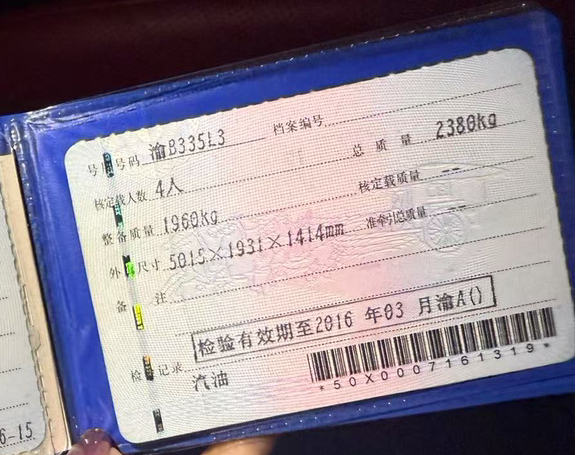 号牌号码 渝B335L3 档案编号
核定载人数 4人 总质量 2380kg
整备质量 1960kg 核定载质量 --
外廓尺寸 5015×1931×1414mm 准牵引总质量 --
备注
检验有效期至2016年03月渝A()
检验记录
汽油
*50X0007161319*
6-15